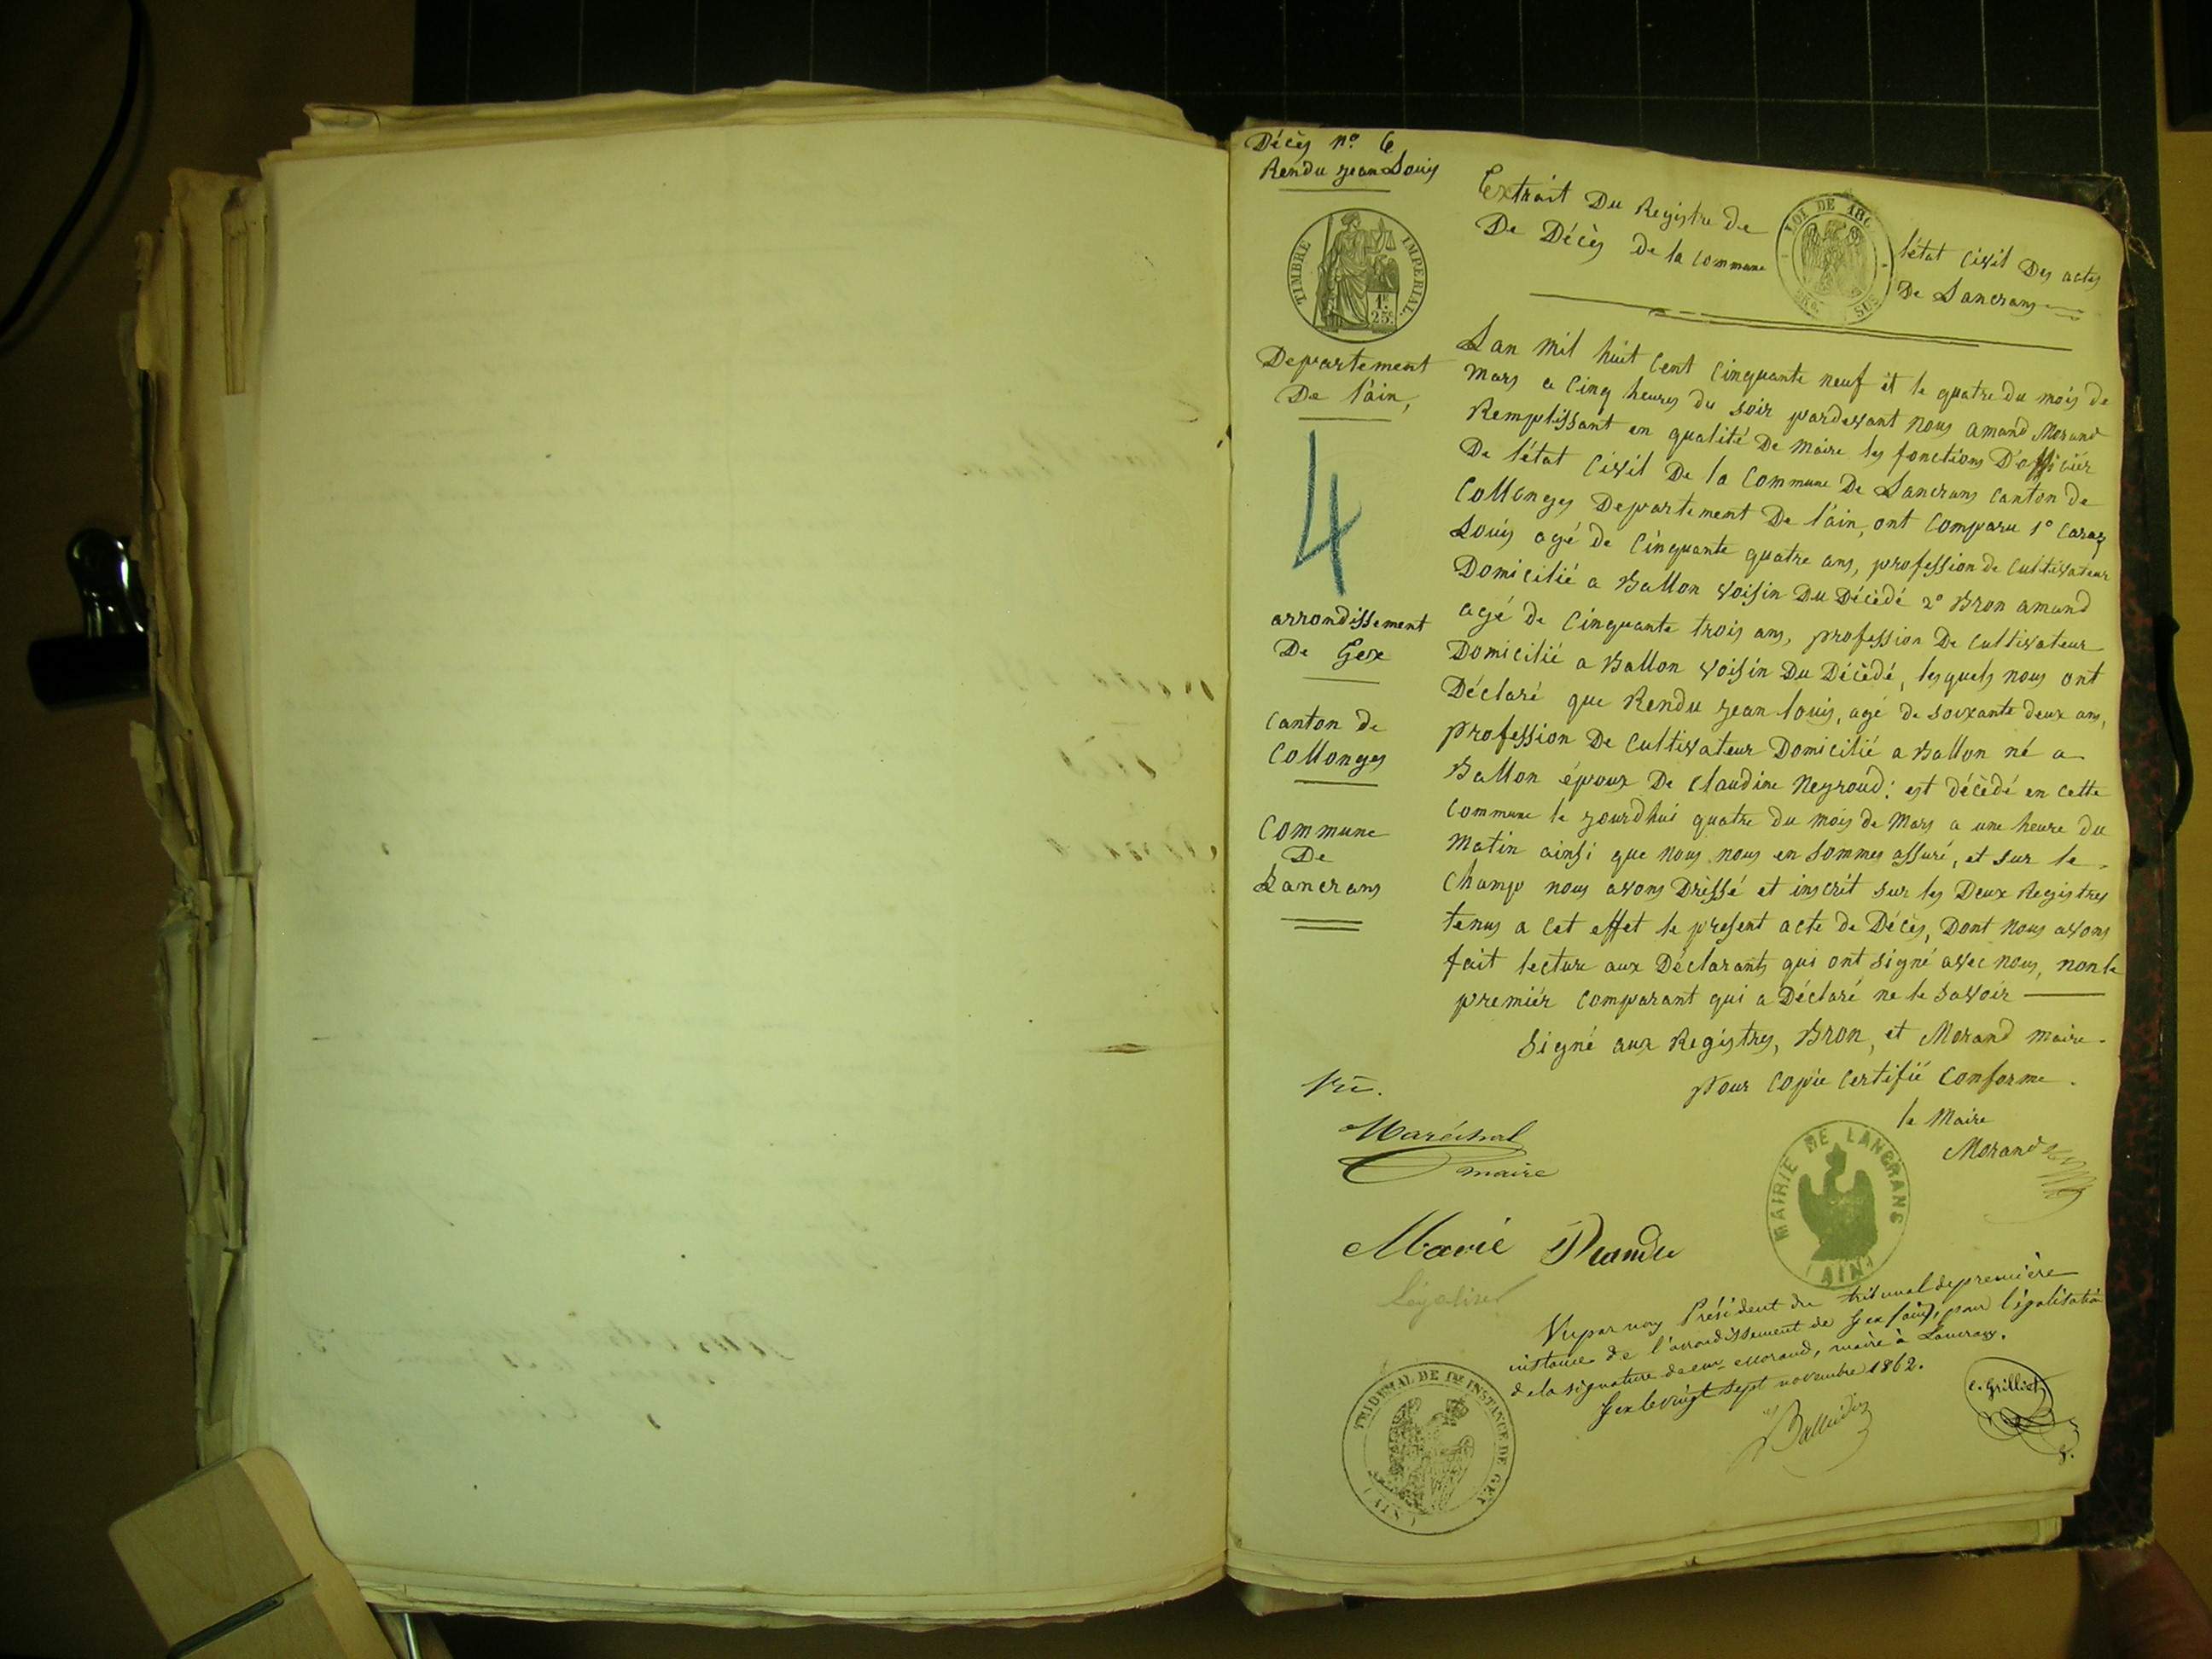 Décès nº 6
Rendu jean Louis
Extrait Du Registre De l'état Civil Des actes
De Décès De la Commune De Lancrans
LOI DE 18
TIMBRE IMPERIAL
1F
25c
Departement
De l'ain,
4
arrondissement
De Gex
Canton de
Collonges
Commune
De
Lancrans
Lan mil huit Cent Cinquante neuf et le quatre du mois de
Mars a Cinq heures du soir pardevant nous amand Morand
Remplissant en qualité De Maire les fonctions D'officiér
De l'état Civil De la Commune De Lancrans Canton de
Collonges Departement De l'ain, ont Comparu 1º Caraz
Louis agé de Cinquante quatre ans, profession de Cultivateur
Domicilié a Ballon voisin Du Décédé 2º Bron amand
agé de Cinquante trois ans, profession De Cultivateur
Domicilié a Ballon voisin Du Décédé, les quels nous ont
Déclaré que Rendu jean louis, agé de soixante deux ans,
profession De Cultivateur Domicilié a Ballon né a
Ballon époux De Claudine Neyroud; est décédé en cette
Commune le jourdhui quatre du mois de Mars a une heure du
Matin ainsi que nous nous en sommes assuré, et sur le
Champ nous avons Dréssé et inscrit sur les Deux Registres
tenus a Cet effet le present acte de Décès, Dont nous avons
fait lecture aux Déclarants qui ont signé avec nous, non le
premiér Comparant qui a Déclaré ne le savoir
Signé aux Registres, Bron, et Morand maire.
pour Copie Certifié Conforme.
le Maire
Morand
Vu.
Maréchal
maire
MAIRIE DE LANCRANS
(AIN)
Marie Randu
Légaliser
Vu par nous Président du tribunal de première
instance de l'arrondissement de Gex (ain), pour légalisation
de la signature de mr Morand, maire à Lancrans.
Gex le vingt sept novembre 1862.
TRIBUNAL DE 1RE INSTANCE DE GEX
(AIN)
C. Grilliet